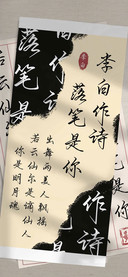 李白作诗
落笔是你
作诗
落笔是
出舞两美人飘摇
若云仙尔是谪仙人
你是明月魂